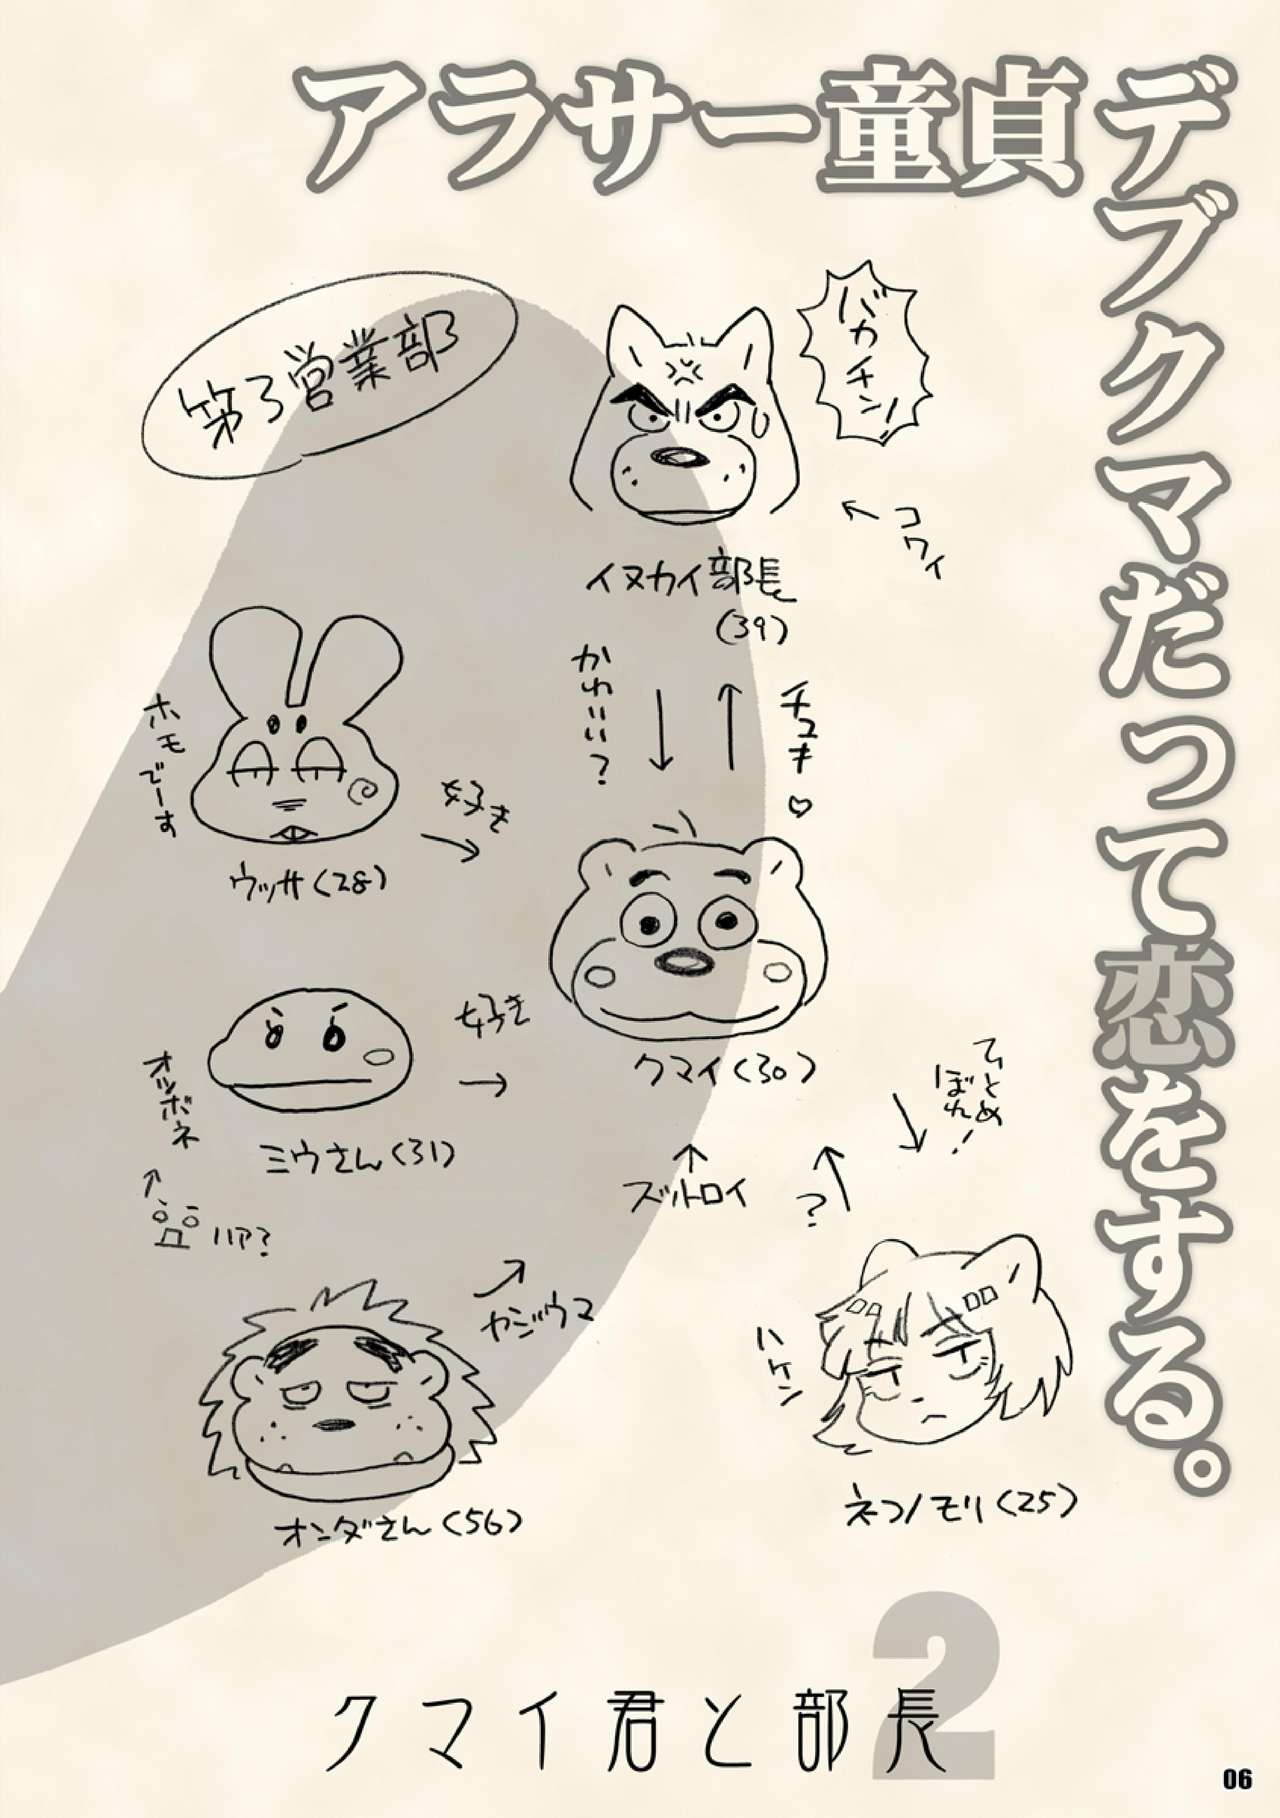 アラサー童貞
デブクマだって恋をする。
第3営業部
バカチン!
コワイ
イヌカイ部長
(39)
かわいい?
チュキ♡
ホモでーす
好き
ウッサ(28)
クマイ(30)
好き
オツボネ
ミウさん(31)
ハア?
ひとめ
ぼれ!
ズットロイ
?
ヤジウマ
オンダさん(56)
ハケン
ネコノモリ(25)
2
クマイ君と部長
06